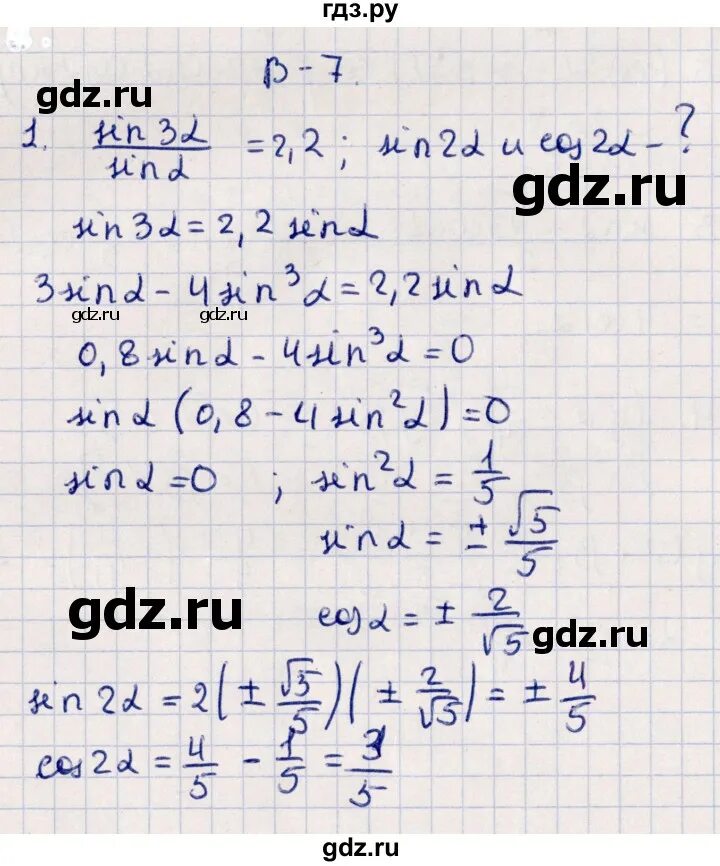 гдз.ру
В-7.
gdz.ru
1. sin3α/sinα = 2,2; sin2α и cos2α - ?
gdz.ru
sin3α = 2,2 sinα
3sinα - 4sin³α = 2,2sinα
gdz.ru gdz.ru
0,8sinα - 4sin³α = 0
sinα(0,8 - 4sin²α) = 0
sinα = 0 ; sin²α = 1/5
sinα = ± √5/5
gdz.ru
cosα = ± 2/√5
gdz.ru
sin2α = 2(± √5/5)(± 2/√5) = ± 4/5
cos2α = 4/5 - 1/5 = 3/5
gdz.ru